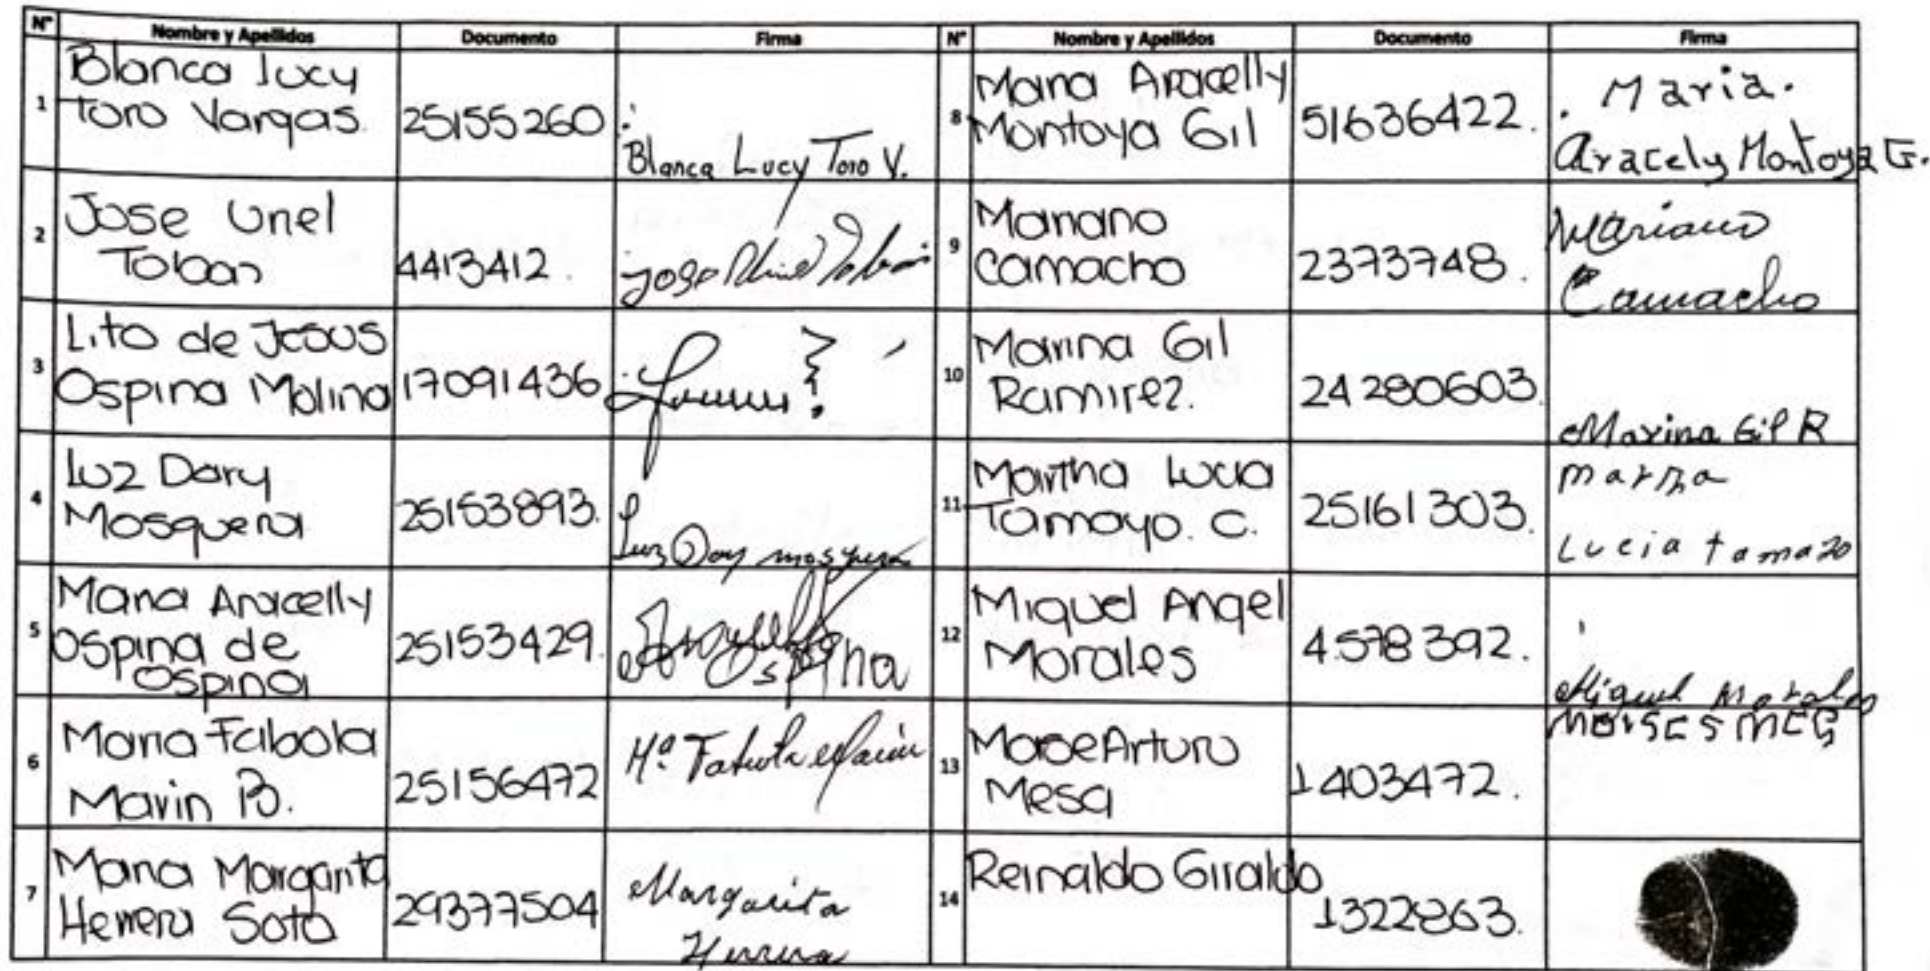 N° Nombre y Apellidos Documento Firma N° Nombre y Apellidos Documento Firma
1 Blanca Lucy Toro Vargas. 25155260 Blanca Lucy Toro V.
8 Maria Aracelly Montoya Gil 51636422. Maria. Aracely Montoya G.
2 Jose Uriel Tobon 4413412. Jose Uriel Tobon
9 Mariano Camacho 2373748. Mariano Camacho
3 Lito de Jesus Ospina Molina 17091436
10 Marina Gil Ramirez. 24280603. Marina Gil R
4 Luz Dary Mosquera 25153893. Luz Dary mosquera
11 Martha Lucia Tamayo. C. 25161303. Lucia tamazo
5 Maria Aracelly Ospina de Ospina 25153429. Aracelly Ospina
12 Miguel Angel Morales 4.578392. Miguel Morales
6 Maria Fabiola Marin B. 25156472 Mª Fabiola Marin
13 Arturo Mesa 1403472. MOISES
7 Maria Margarita Herrera Soto 29377504 Margarita Herrera
14 Reinaldo Giraldo 1322863.